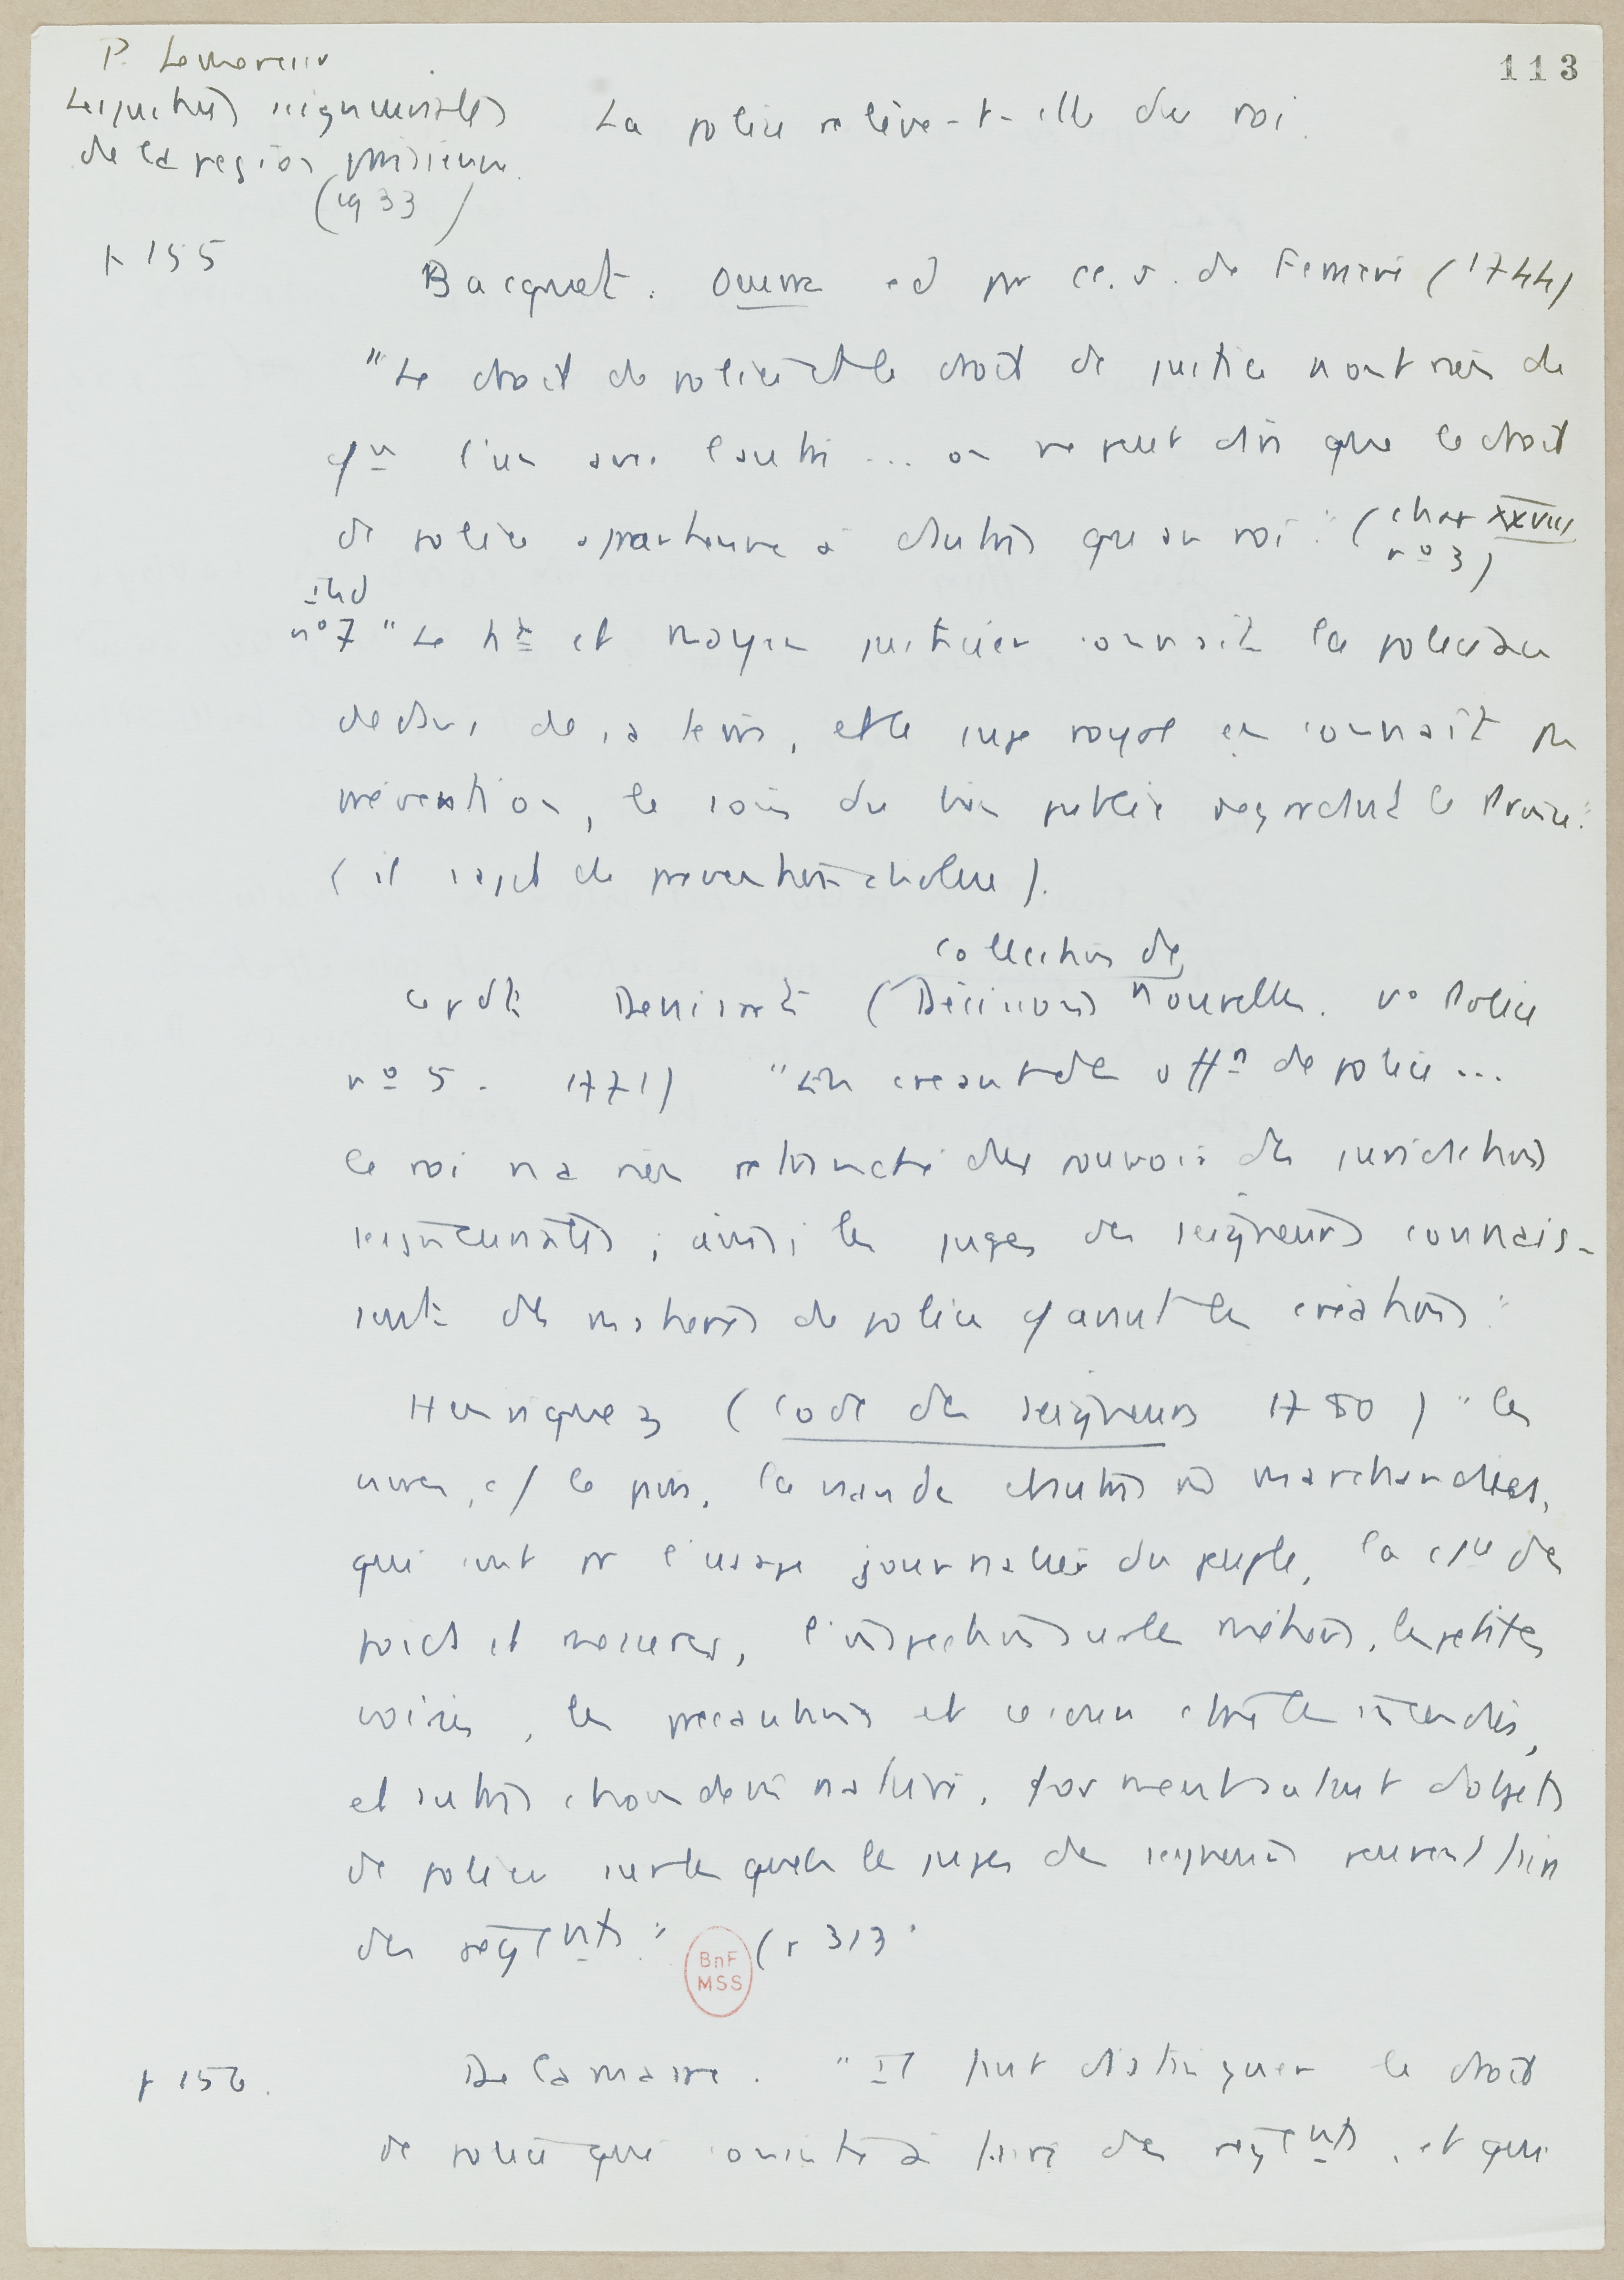 113
P. Lemercier
Les justices seigneuriales
de la region parisienne.
(1933)
La police relève-t-elle du roi.
p 155
Bacquet. Œuvres ed par Cl. J. de Ferrière (1744)
"Le droit de police et le droit de justice n'ont rien de
cqn l'un avec l'autre ... on ne peut dire que le droit
de police appartienne à d'autres qu'au roi" (chap XXVIII
n° 3)
Ibid
n° 7 "Le ht et moyen justicier connait la police au
dedans de sa terre, et le juge royal en connaît par
prévention, le soin du bien public regardant le Prince."
(il s'agit de prevention absolue).
Collection de
Cpdt Denisart (Décisions nouvelles. v° Police
n° 5. 1771) "En creant des offrs de police...
le roi n'a rien retranché des pouvoirs des juridictions
seigneuriales ; ainsi les juges des seigneurs connais-
sent des matieres de police q avant les créations"
Henriquez (Code des seigneurs 1780) "les
vivres, c/ le pain, la viande et autres marchandises,
qui sont pr l'usage journalier du peuple, la des
poids et mesures, l'inspection sur les métiers, les petites
voiries, les precautions et contre les incendies,
et autres choses de cette nature, forment autant d'objets
de police sur lesquels les juges des seigneurs peuvent faire
des reglents" (p 313
BnF
MSS
p 156.
Delamarre. "Il faut distinguer le droit
de police qui consiste à faire des reglents, et qui